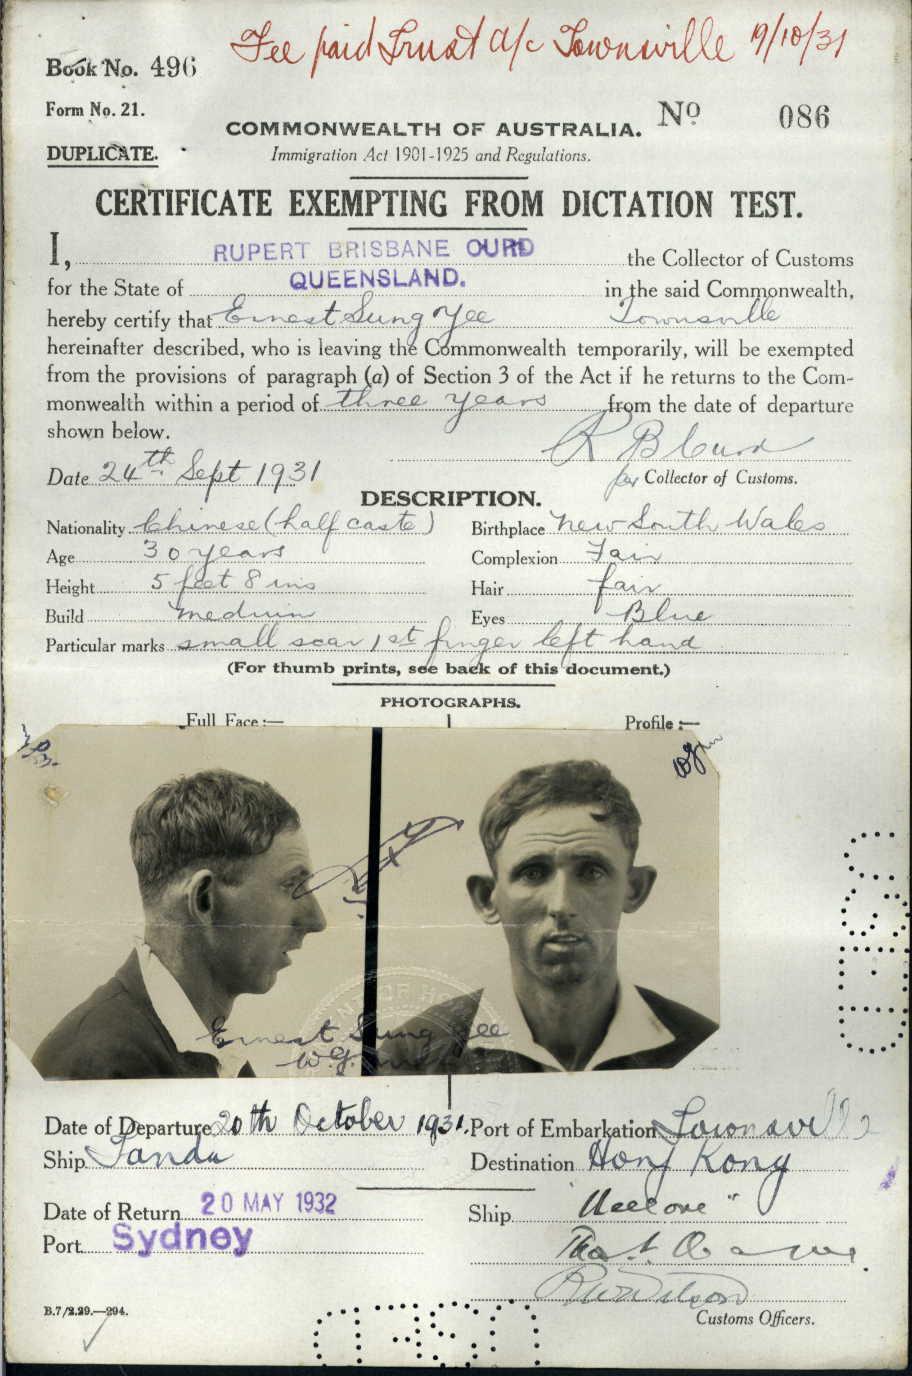 Fee paid Trust a/c Townsville 9/10/31
Book No. 496
Form No. 21.
No 086
COMMONWEALTH OF AUSTRALIA.
DUPLICATE.
Immigration Act 1901-1925 and Regulations.
CERTIFICATE EXEMPTING FROM DICTATION TEST.
I, RUPERT BRISBANE OURD the Collector of Customs
for the State of QUEENSLAND. in the said Commonwealth,
hereby certify that Ernest Sung Yee Townsville
hereinafter described, who is leaving the Commonwealth temporarily, will be exempted
from the provisions of paragraph (a) of Section 3 of the Act if he returns to the Com-
monwealth within a period of three years from the date of departure
shown below.
Date 24th Sept 1931
for Collector of Customs.
DESCRIPTION.
Nationality Chinese (half caste) Birthplace New South Wales
Age 30 years Complexion Fair
Height 5 feet 8 ins Hair fair
Build medium Eyes Blue
Particular marks small scar 1st finger left hand
(For thumb prints, see back of this document.)
PHOTOGRAPHS.
Full Face:— Profile:—
Ernest Sung Yee
Date of Departure 20th October 1931. Port of Embarkation Townsville
Ship Tanda Destination Hong Kong
Date of Return 20 MAY 1932 Ship
Port Sydney
B.7/2.29.—294.
Customs Officers.